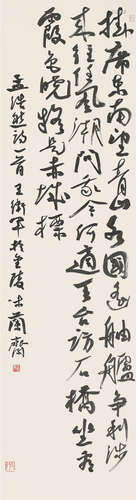 挂席东南望青山水国遥舳舻争利涉
来往任风潮问我今何适天台访石桥坐看
霞色晓疑是赤城标
孟浩然诗一首王卫军于金陵味兰斋